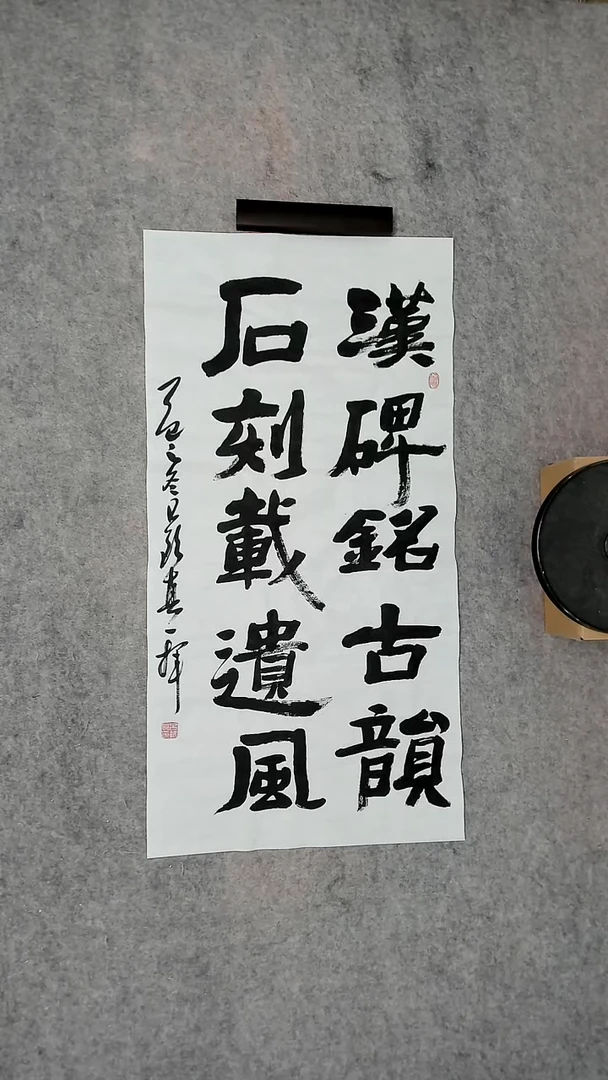 漢碑銘古韻
石刻載遺風